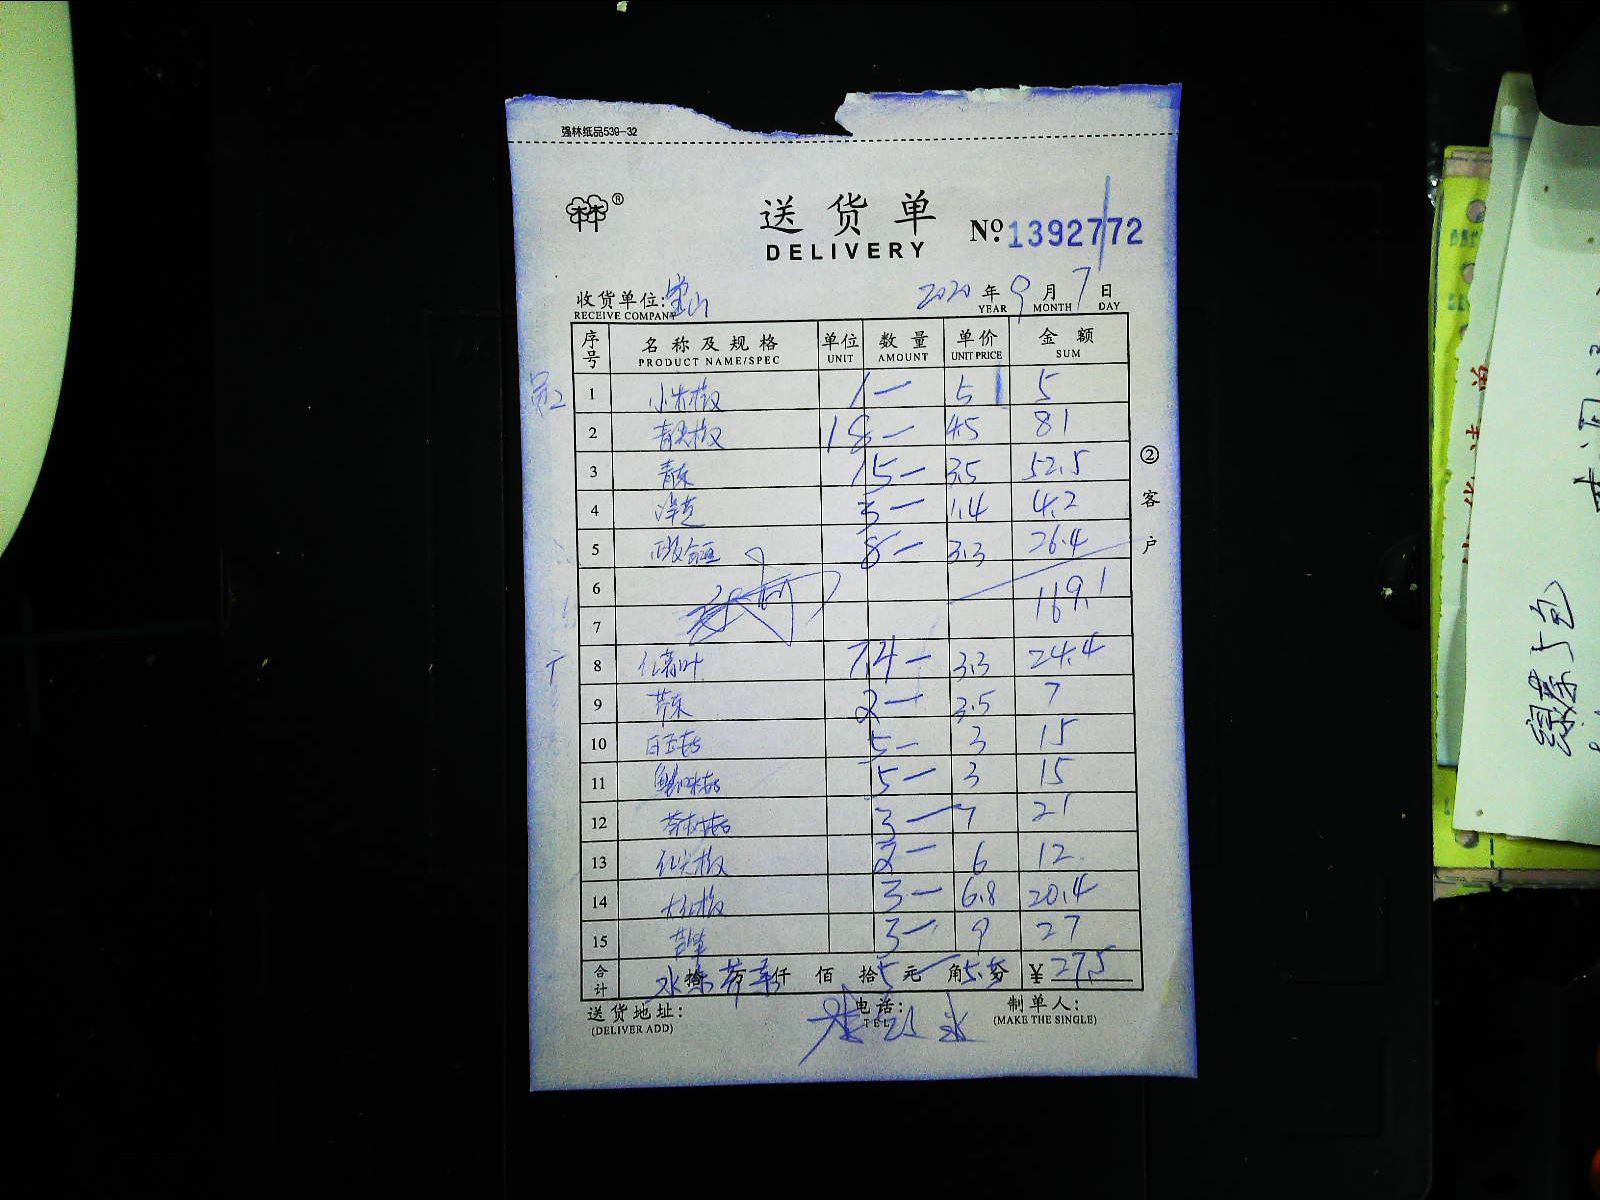 强林纸品539-32
林林®
送货单
DELIVERY
No. 1392772
收货单位: 宝山 2020 年 9 月 7 日
RECEIVE COMPANY YEAR MONTH DAY
序号 名称及规格 单位 数量 单价 金额
PRODUCT NAME/SPEC UNIT AMOUNT UNIT PRICE SUM
1 小米椒 1 — 5 5
2 青尖椒 18 — 4.5 81
3 青东 15 — 3.5 52.5
4 洋芝 3 — 1.4 4.2
5 8 — 3.3 26.4
6
7 169.1
8 红苏叶 7.4 — 3.3 24.4
9 芹东 2 — 3.5 7
10 白玉菇 5 — 3 15
11 蟹味菇 5 — 3 15
12 茶树菇 3 — 7 21
13 红尖椒 2 — 6 12
14 大红椒 3 — 6.8 20.4
15 芦笋 3 — 9 27
合计 拾 万 仟 佰 拾 元 角 分 ¥ 27.5
水 5 — 5.5
②客户
送货地址: 电话: 制单人:
(DELIVER ADD) TEL (MAKE THE SINGLE)
5包